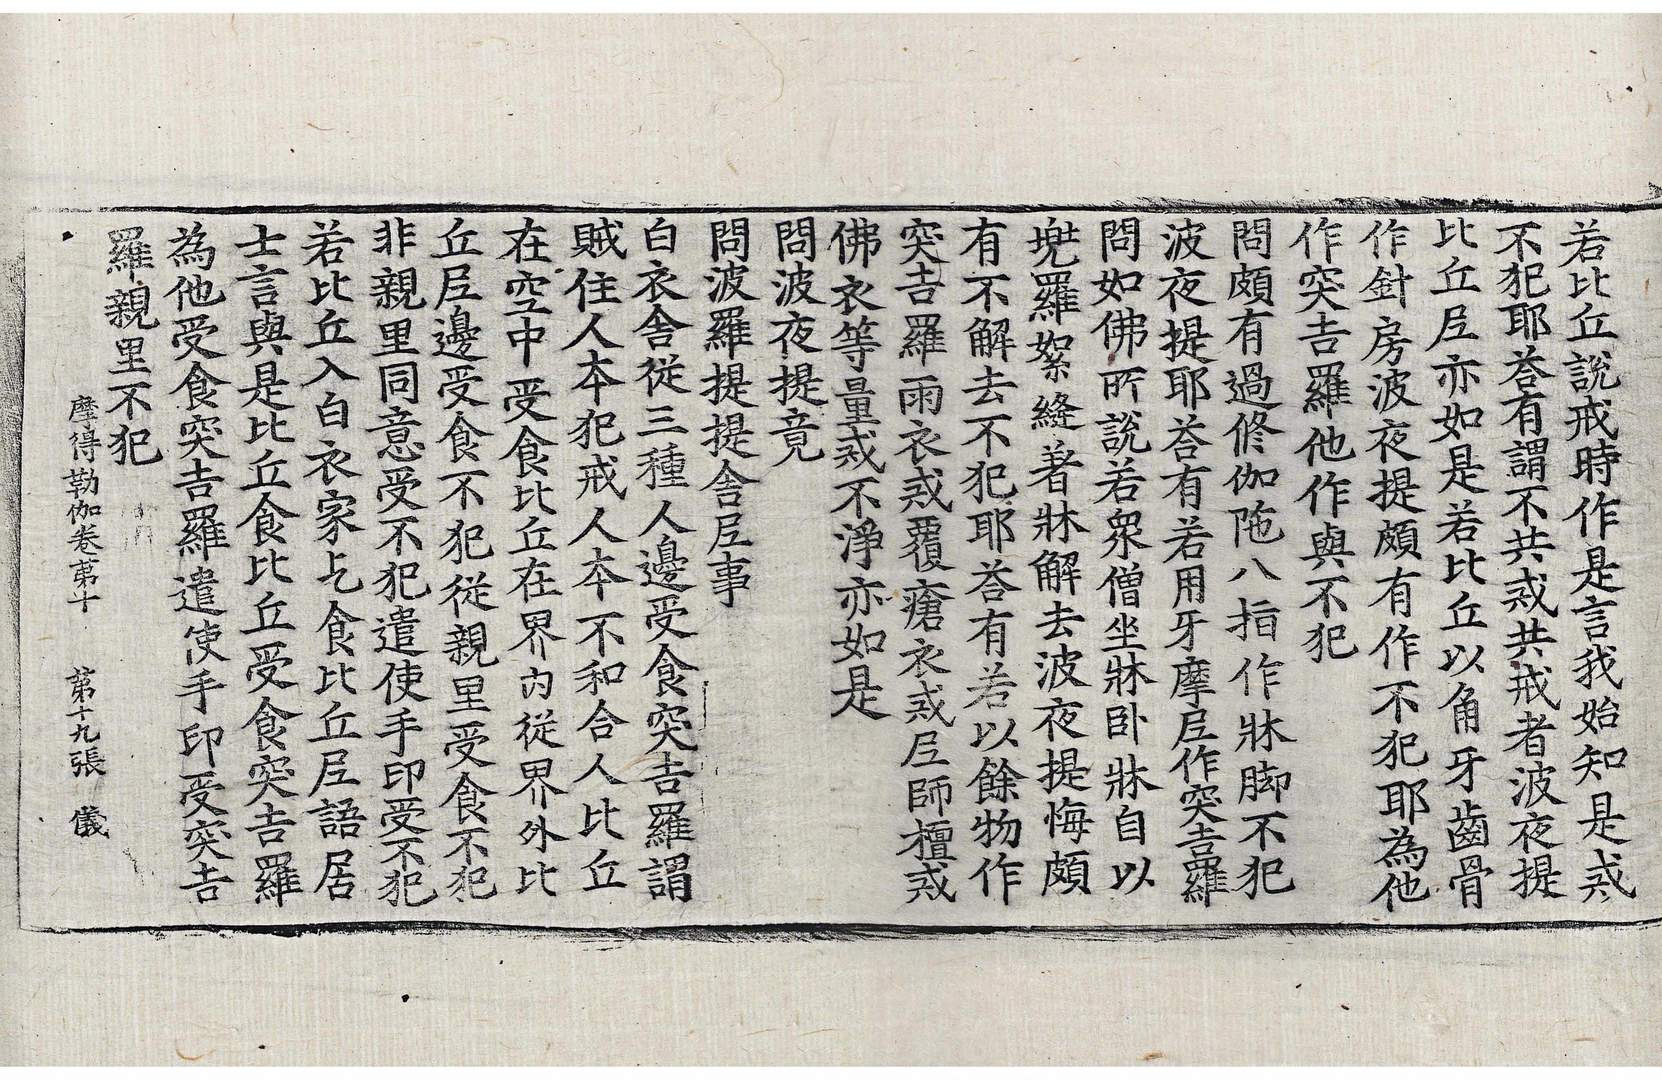 若比丘說戒時作是言我始知是戒
不犯耶荅有謂不共戒共戒者波夜提
比丘尼亦如是若比丘以角牙齒骨
作針房波夜提頗有作不犯耶為他
作突吉羅他作與不犯
問頗有過修伽陁八指作牀脚不犯
波夜提耶荅有若用牙摩尼作突吉羅
問如佛所說若衆僧坐牀卧牀自以
兠羅絮縫著牀解去波夜提悔頗
有不解去不犯耶荅有若以餘物作
突吉羅雨衣戒覆瘡衣戒尼師檀戒
佛衣等量戒不淨亦如是
問波夜提竟
問波羅提提舍尼事
白衣舍従三種人邊受食突吉羅謂
賊住人本犯戒人本不和合人比丘
在空中受食比丘在界內従界外比
丘尼邊受食不犯従親里受食不犯
非親里同意受不犯遣使手印受不犯
若比丘入白衣家乞食比丘尼語居
士言與是比丘食比丘受食突吉羅
為他受食突吉羅遣使手印受突吉
羅親里不犯
摩得勒伽卷苐十 苐十九張 儀